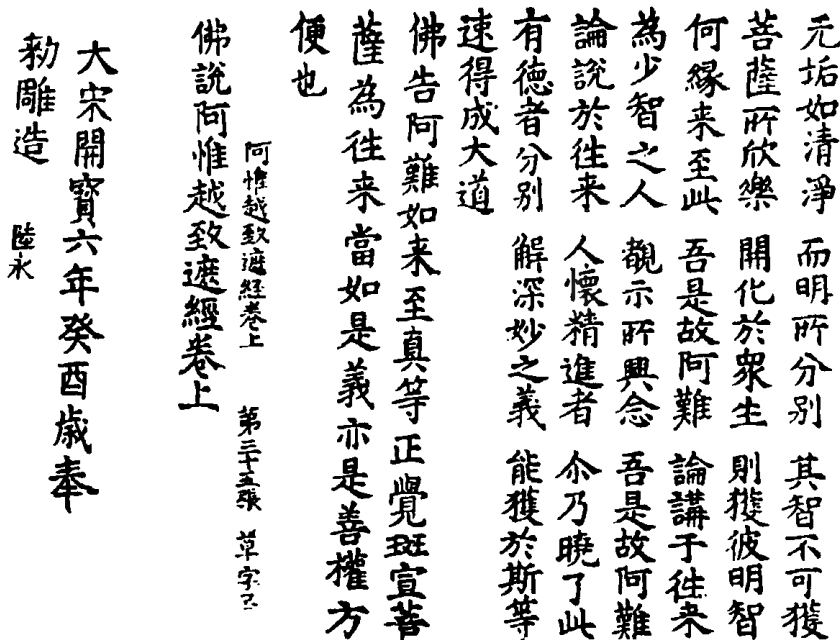 无垢如清淨 而明所分別 其智不可獲
菩薩所欣樂 開化於衆生 則獲彼明智
何緣来至此 吾是故阿難 論講于往来
為少智之人 覩示所興念 吾是故阿難
論說於往来 人懷精進者 尒乃曉了此
有德者分別 解深妙之義 能獲於斯等
速得成大道
佛告阿難如来至真等正覺班宣菩
薩為往来當如是義亦是善權方
便也
阿惟越致遮經卷上 第三十五張 草字号
佛說阿惟越致遮經卷上
大宋開寶六年癸酉歳奉
勑雕造 陸永